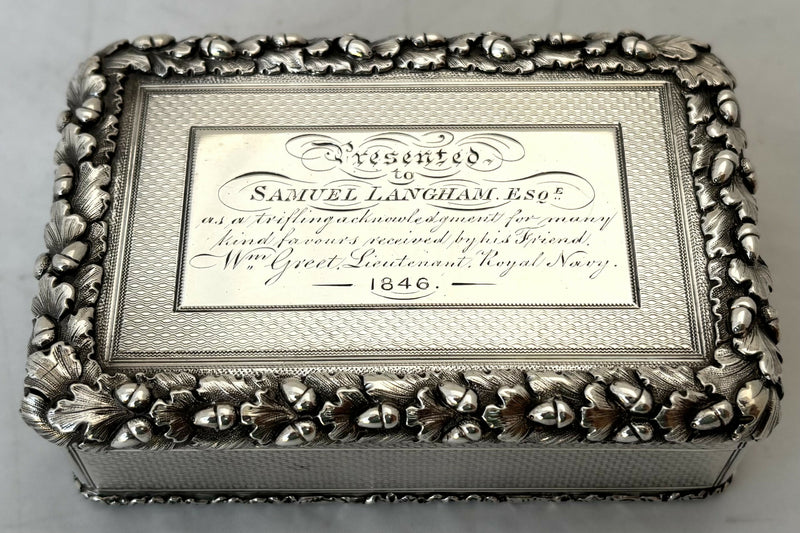 Presented,
to
SAMUEL LANGHAM. ESQE.
as a trifling acknowledgment for many
kind favours received, by his Friend,
Wm Greet, Lieutenant, Royal Navy.
— 1846. —